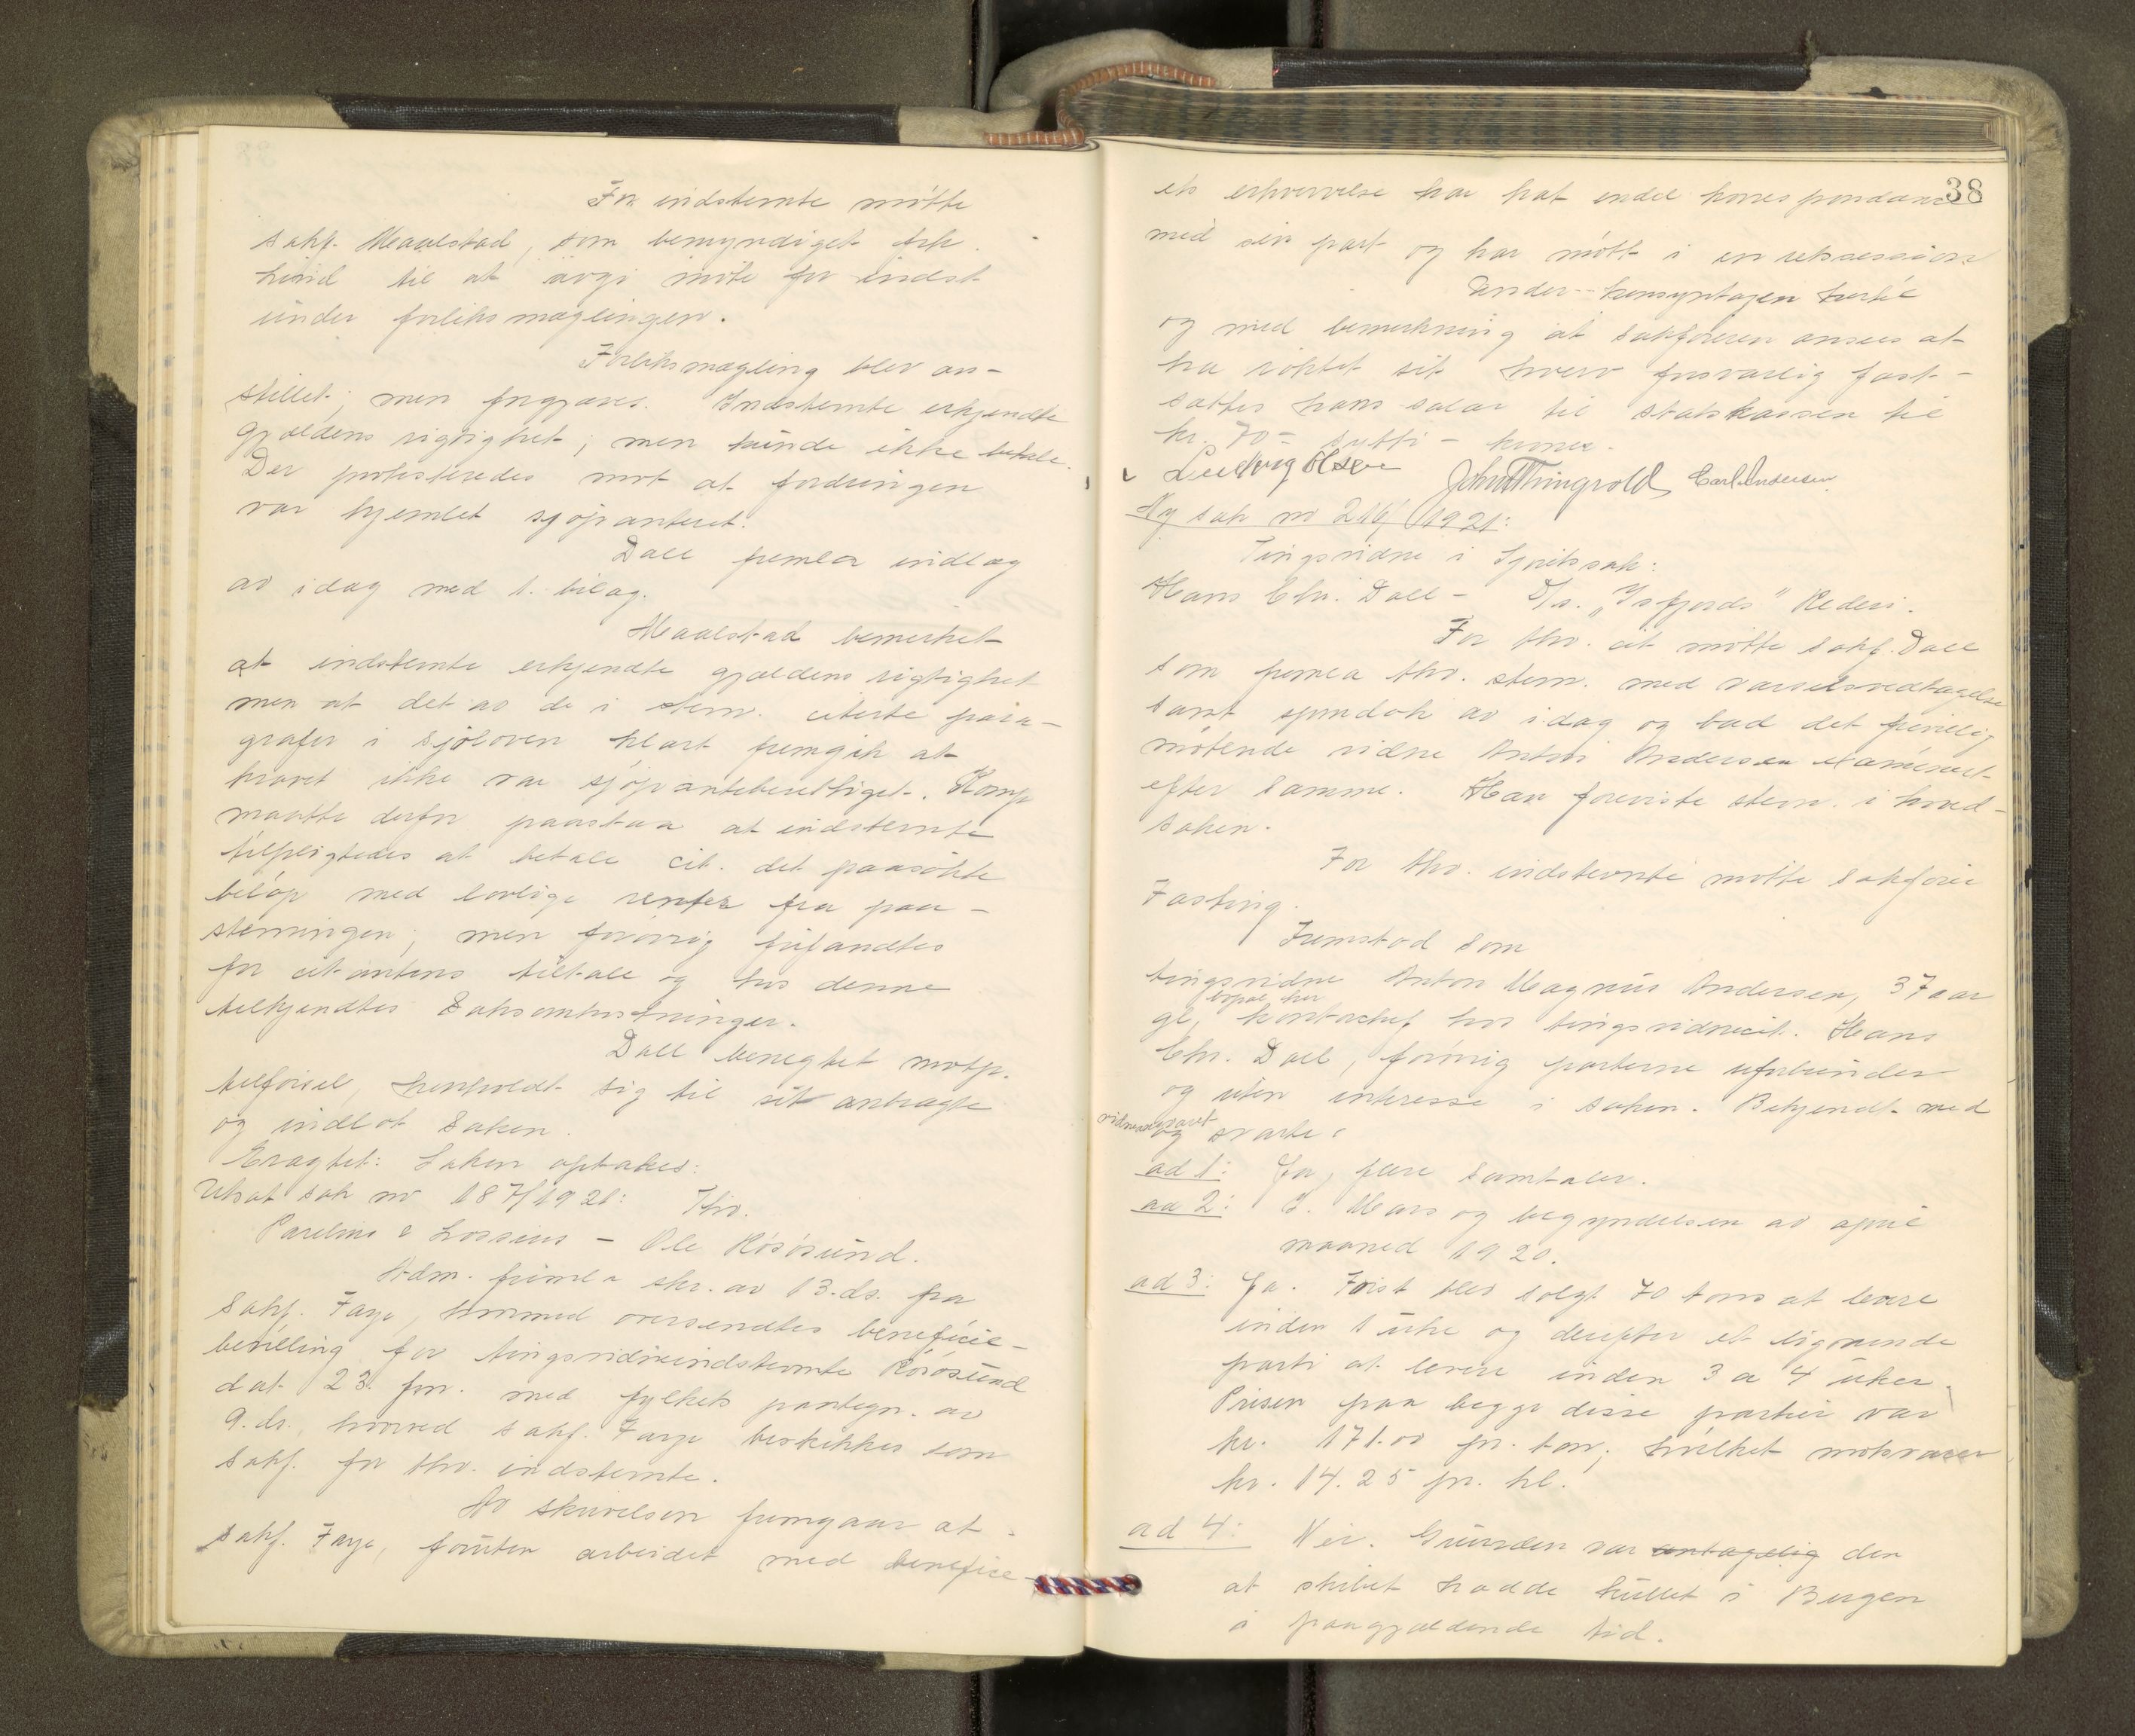 For indstemte møtte
sakf. Maalstad, som bemyndiget frk.
Lund til at avgi møte for indst
under forliksmæglingen.
Forliksmægling blev an-
stillet; men forgjæves. Indstemte erkjendte
gjældens rigtighet; men kunde ikke betale.
Der protesteredes mot at fordringen
var hjemlet sjøpanteret.
Dall fremla indlæg
av idag med 1. bilag.
Maalstad bemerket
at indstemte erkjendte gjældens rigtighet
men at det av de i stevn. citerte para-
grafer i sjøloven klart fremgik at
kravet ikke var sjøpanteberettiget. Komp
maatte derfor paastaa at indstemte
tilpligtedes at betale cit. det paasøkte
beløp med lovlige renter fra paa-
stemningen; men forøvrig frifandtes
for citantens tiltale og hos denne
tilkjendtes saksomkostninger.
Dall benegtet motp.
tilførsel, henholdt sig til sit antragte
og indlot saken.
Eragtet: Saken optakes:
Utsat sak nr 187/1921: Thv.
Parelius & Lossius - Ole Rösösund.
Adm. fremla skr. av 13. ds. fra
sakf. Faye, hvormed oversendtes beneficie-
bevilling for tingsvidneindstemte Rösösund
dat 23. for. med fylkets paategn. av
9. ds., hvorved sakf. Faye beskikkes som
sakf. for thv. indstemte.
Av skrivelsen fremgaar at
sakf. Faye, foruten arbeidet med benefice-
38
ets erhvervelse har hat endel korrespondance
med sin part og har møtt i en retssession
Under hensyntagen hertil
og med bemerkning at sakføreren ansees at
ha røktet sit hverv forsvarlig fast-
sættes hans salær til statskassen til
kr. 70 - sytti - kroner.
Ludvig Olsen John Thingvold Carl Andersen
Ny sak nr 216/1921:
Tingsvidne i Spritsak:
Hans Chr. Dall - D/s. „Isfjords" Rederi.
For thv. cit møtte sakf. Dall
som fremla thv. stevn. med varselsvedtagelse
samt spmdok av idag og bad det frivillig
møtende vidne Anton Andersen examinert
efter samme. Han foreviste stevn. i hoved-
saken.
For thv. indstevnte møtte sakfører
Fasting.
Fremstod som
tingsvidne Anton Magnus Andersen, 37 aar
bopæl her
gl, kontorchef hos tingsvidnecit. Hans
Chr. Dall, forøvrig parterne uforbunden
og uten interesse i saken. Bekjendt med
vidneansvaret
og svarte:
ad 1: Ja, flere samtaler.
ad 2: I. Mars og begyndelsen av april
maaned 1920.
ad 3: Ja. Først blev solgt 70 tons at levere
inden 1 uke og derefter et lignende
parti at levere inden 3 a 4 uker.
Prisen paa begge disse partier var
kr. 171.00 pr. ton; hvilket motsvarer
kr. 14.25 pr. hl.
ad 4: Nei. Grunden var antagelig den
at skibet hadde kullet i Bergen
i paagjældende tid.